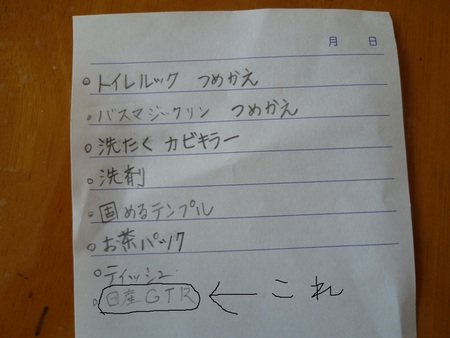 月 日
○トイレルック つめかえ
○バスマジックリン つめかえ
○洗たく カビキラー
○洗剤
○固めるテンプル
○お茶パック
○ティッシュ
○日産GTR ← これ